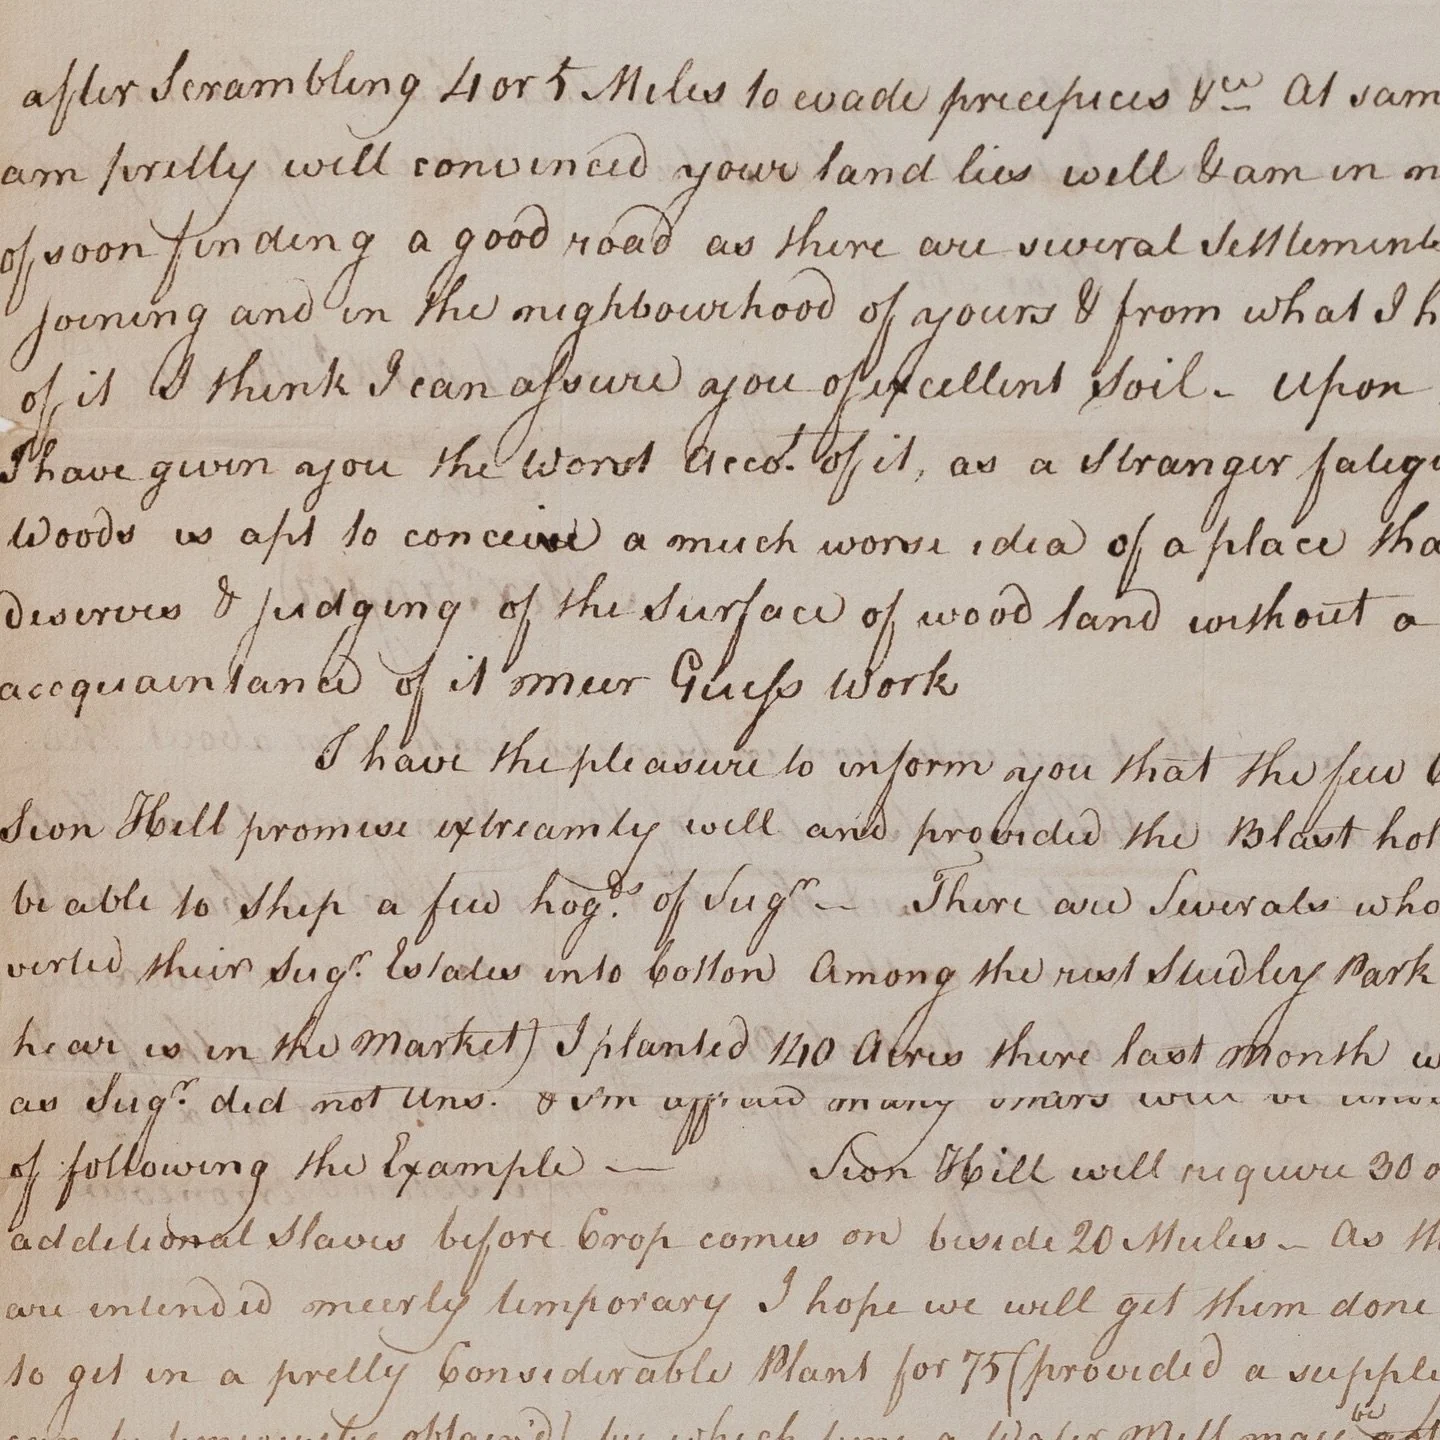 after Scrambling 4 or 5 Miles to evade precepices &ca At sam
am pretty well convinced your land lies well & am in
of soon finding a good road as there are several Settlements
joining and in the nighbourhood of yours & from what I h
of it I think I can assure you of excellent Soil - Upon
I have given you the Worst Acco.t of it, as a Stranger fatig
Woods is apt to conceive a much worse idea of a place tha
deserves & judging of the Surface of wood land without a
accquaintance of it meer Guess Work
I have the pleasure to inform you that the few
Sion Hill promise extreamly well and provided the Blast hol
be able to Ship a few hog.ds of Sug.r - There are Severals who
verted their Sug.r Estates into Cotton Among the rest Studley Park
hear is in the Market) I planted 140 Acres there last Month w
as Sug.r did not Ans. & I'm affraid many others will be
of following the Example - Sion Hill will require 30 o
additional Slaves before Crop comes on beside 20 Mules - As th
are intended meerly temporary I hope we will get them done
to get in a pretty Considerable Plant for 75 (provided a supply
obtain'd) by which time a Water Mill may be